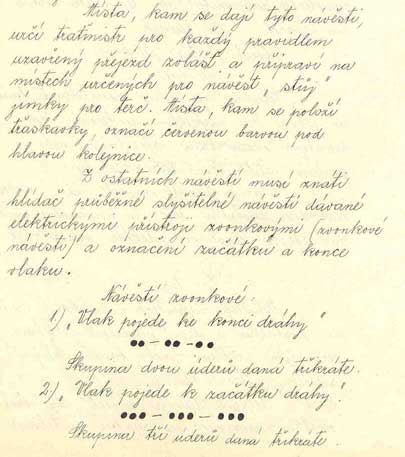 Místa, kam se dají tyto návěsti,
určí tratmistr pro každý pravidlem
uzavřený přejezd zvlášť a připraví na
místech určených pro návěst „stůj"
jímky pro terč. Místa, kam se položí
třaskavky, označí červenou barvou pod
hlavou kolejnice.
Z ostatních návěstí musí znáti
hlídač průběžné slyšitelné návěsti dávané
elektrickými přístroji zvonkovými (zvonkové
návěsti) a označení začátků a konce
vlaku.
Návěsti zvonkové:
1) „Vlak pojede ke konci dráhy"
●● — ●● — ●●
Skupina dvou úderů daná třikráte.
2.) „Vlak pojede k začátku dráhy".
●●● — ●●● — ●●●
Skupina tří úderů daná třikráte.